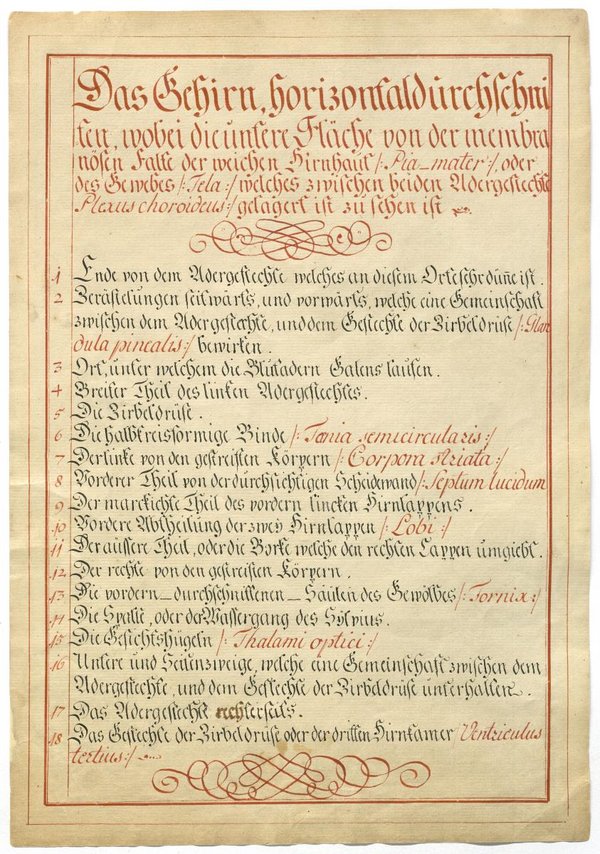 Das Gehirn, horizontaldurchschni
ten, wobei die untere Fläche von der membra
nösen Falte der weichen Hirnhaut /: Pia_mater :/ oder
des Gewebes /: Tela :/ welches zwischen beiden Adergeflechte
Plexus choroideus :/ gelagert ist zu sehen ist
1 Ende von dem Adergeflechte welches an diesem Orte sehr düñe ist.
2 Zerästelungen seitwärts, und vorwärts, welche eine Gemeinschaft
zwischen dem Adergeflechte, und dem Geflechte der Zirbeldrüse /: Glan
dula pinealis :/ bewirken.
3 Ort, unter welchem die Blutadern Galens laufen.
4 Breiter Theil des linken Adergeflechtes.
5 Die Zirbeldrüse.
6 Die halbkreisförmige Binde /: Tænia semicircularis :/
7 Der linke von den gestreiften Körpern /: Corpora striata :/
8 Vorderer Theil von der durchsichtigen Scheidewand /: Septum lucidum
9 Der markichte Theil des vordern lincken Hirnlappens.
10 Vordere Abtheilung der zwey Hirnlappen /: Lobi :/
11 Der äussere Theil, oder die Borke welche den rechten Lappen umgiebt.
12 Der rechte von den gestreiften Körpern.
13 Die vordern_durchschnittenen_Säulen des Gewölbes /: Fornix :/
14 Die Spalte, oder der Wassergang des Sylvius.
15 Die Gesichtshügeln /: Thalami optici :/
16 Untere und Seitenzweige, welche eine Gemeinschaft zwischen dem
Adergeflechte, und dem Geflechte der Zirbeldrüse unterhalten.
17 Das Adergeflecht rechterseits.
18 Das Geflechte der Zirbeldrüse oder der dritten Hirnkamer Ventriculus
tertius :/